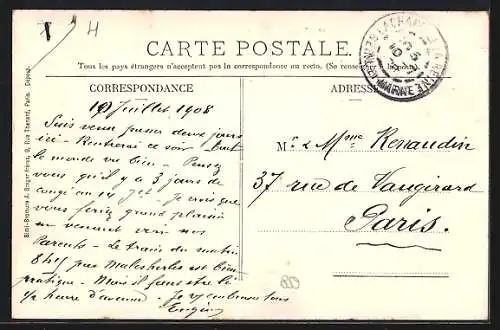 CARTE POSTALE.
Tous les pays étrangers n'acceptent pas la correspondance au recto. (Se renseigner à la poste).
CORRESPONDANCE
ADRESSE
19 Juillet 1908
Suis venu passer deux jours
ici - Rentrerai ce soir - tout
le monde va bien - Pensez
vous qu'il y a 3 jours de
congé au 14 Jet - Je crois que
vous feriez grand plaisir
en venant voir nos
Parents - Le train du matin
8h15 par Malesherbes est bien
pratique - Mais il faut être là
1/2 heure d'avance - Je vs embrasse tous
Eugène
Mr & Mme Renaudin
37 rue de Vaugirard
Paris.
MARNE